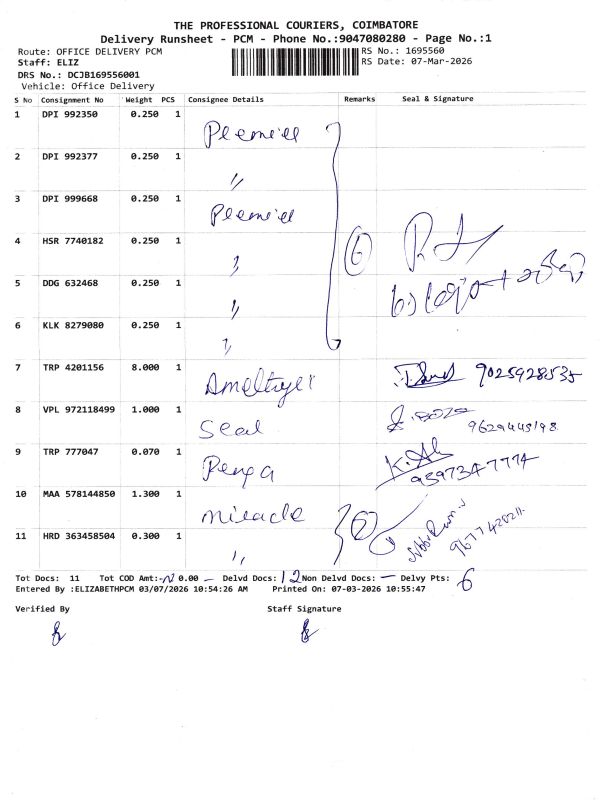 THE PROFESSIONAL COURIERS, COIMBATORE
Delivery Runsheet - PCM - Phone No.:9047080280 - Page No.:1
Route: OFFICE DELIVERY PCM RS No.: 1695560
Staff: ELIZ RS Date: 07-Mar-2026
DRS No.: DCJB169556001
Vehicle: Office Delivery
S No Consignment No Weight PCS Consignee Details Remarks Seal & Signature
1 DPI 992350 0.250 1
2 DPI 992377 0.250 1 "
3 DPI 999668 0.250 1
4 HSR 7740182 0.250 1 "
5 DDG 632468 0.250 1 " 6
6 KLK 8279080 0.250 1 "
7 TRP 4201156 8.000 1 9025928535
8 VPL 972118499 1.000 1 Seal 9629445198
9 TRP 777047 0.070 1 Renga K. 9597347774
10 MAA 578144850 1.300 1 miracle 2
11 HRD 363458504 0.300 1 "
Tot Docs: 11 Tot COD Amt: 0.00 - Delvd Docs: 12 Non Delvd Docs: - Delvy Pts: 6
Entered By :ELIZABETHPCM 03/07/2026 10:54:26 AM Printed On: 07-03-2026 10:55:47
Verified By Staff Signature